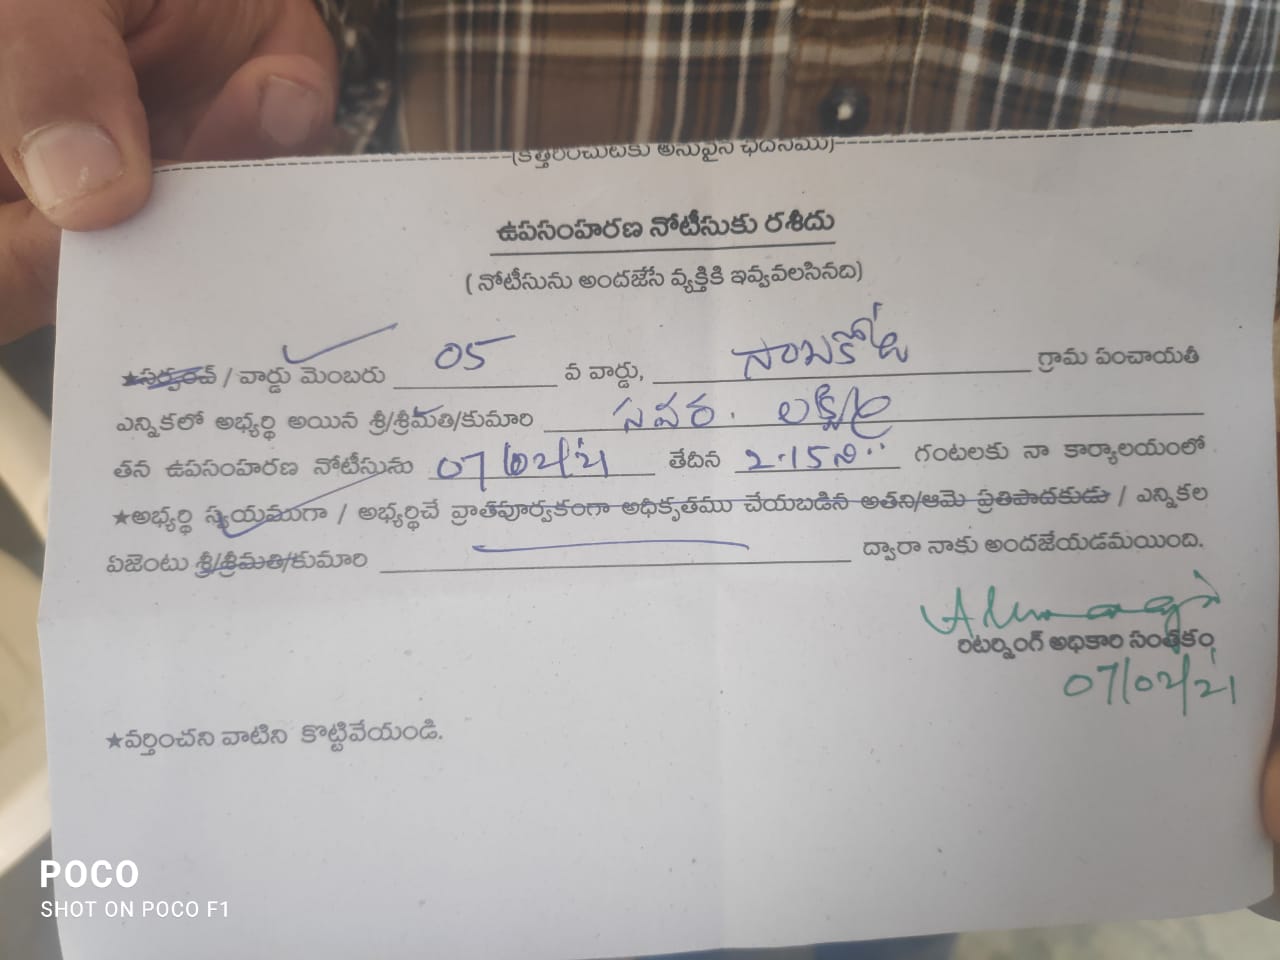 (కత్తిరించుటకు అనువైన ఛేదనము)
ఉపసంహరణ నోటీసుకు రశీదు
( నోటీసును అందజేసే వ్యక్తికి ఇవ్వవలసినది)
★సర్పంచ్ / వార్డు మెంబరు 05 వ వార్డు, సాబకోట గ్రామ పంచాయతీ
ఎన్నికలో అభ్యర్థి అయిన శ్రీ/శ్రీమతి/కుమారి సవర. లక్ష్మి
తన ఉపసంహరణ నోటీసును 07/02/21 తేదీన 2.15 ని.. గంటలకు నా కార్యాలయంలో
★అభ్యర్థి స్వయముగా / అభ్యర్థిచే వ్రాతపూర్వకంగా అధికృతము చేయబడిన అతని/ఆమె ప్రతిపాదకుడు / ఎన్నికల
ఏజెంటు శ్రీ/శ్రీమతి/కుమారి ద్వారా నాకు అందజేయడమయింది.
రిటర్నింగ్ అధికారి సంతకం
07/02/21
★వర్తించని వాటిని కొట్టివేయండి.
POCO
SHOT ON POCO F1